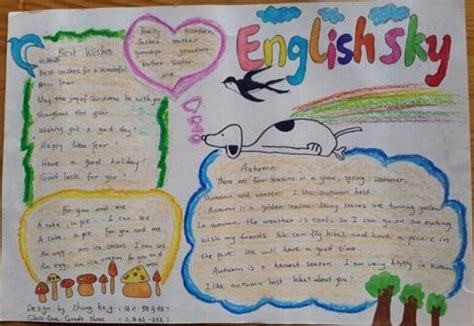 English Sky
Best Wishes
Best wishes for a wonderful
New Year!
May the joy of Christmas be with you
throughout the year
Wishing you a good day!
Happy New Year!
Have a good holiday!
Good luck for you!
family
father mother
grandpa grandma
brother sister
me
For you and me
A cake, a pie, I can see
A cake, a pie for you and me
An egg, an ice cream I can see
An egg, an ice cream for you and
Autumn
There are four seasons in a year, spring, summer,
autumn and winter. I like autumn best.
Autumn is a golden season. Many leaves are turning yellow.
In autumn, the weather is cool. So I can go on an outing
with my friends. We can fly kites and have a picnic in
the park. We will have a good time.
Autumn is a harvest season. I am very happy in autumn.
I like autumn best. What about you?
Design by Zhang
Class One Grade Three